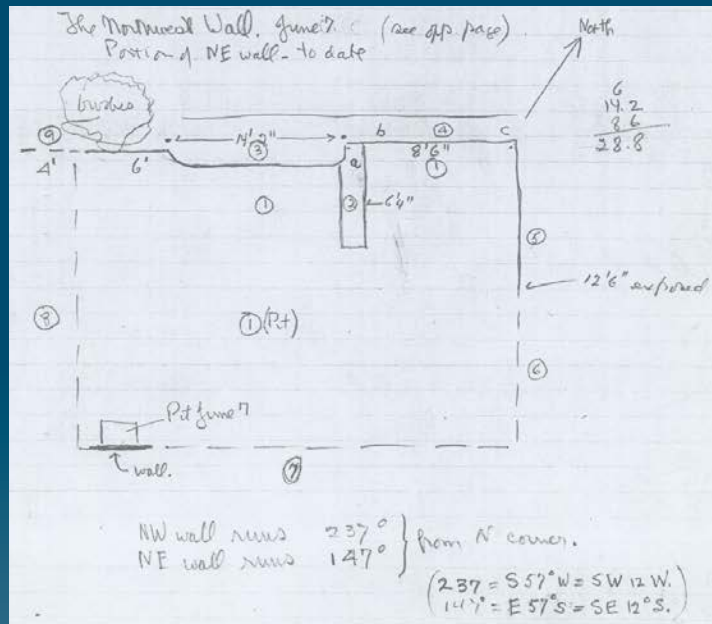 The Northwest Wall. June 7. (see opp. page)
Portion of NE wall - to date
North
bushes
6
14.2
8 6
28.8
⑨
14' 2"
b
④
c
③
8' 6"
4'
6'
a
①
①
②
6'4"
⑤
12'6" exposed
⑧
① (Pit)
⑥
Pit June 7
wall.
⑦
NW wall runs 237°
NE wall runs 147°
from N corner.
(237 = S 57° W = SW 12 W.
147° = E 57° S = SE 12° S.)